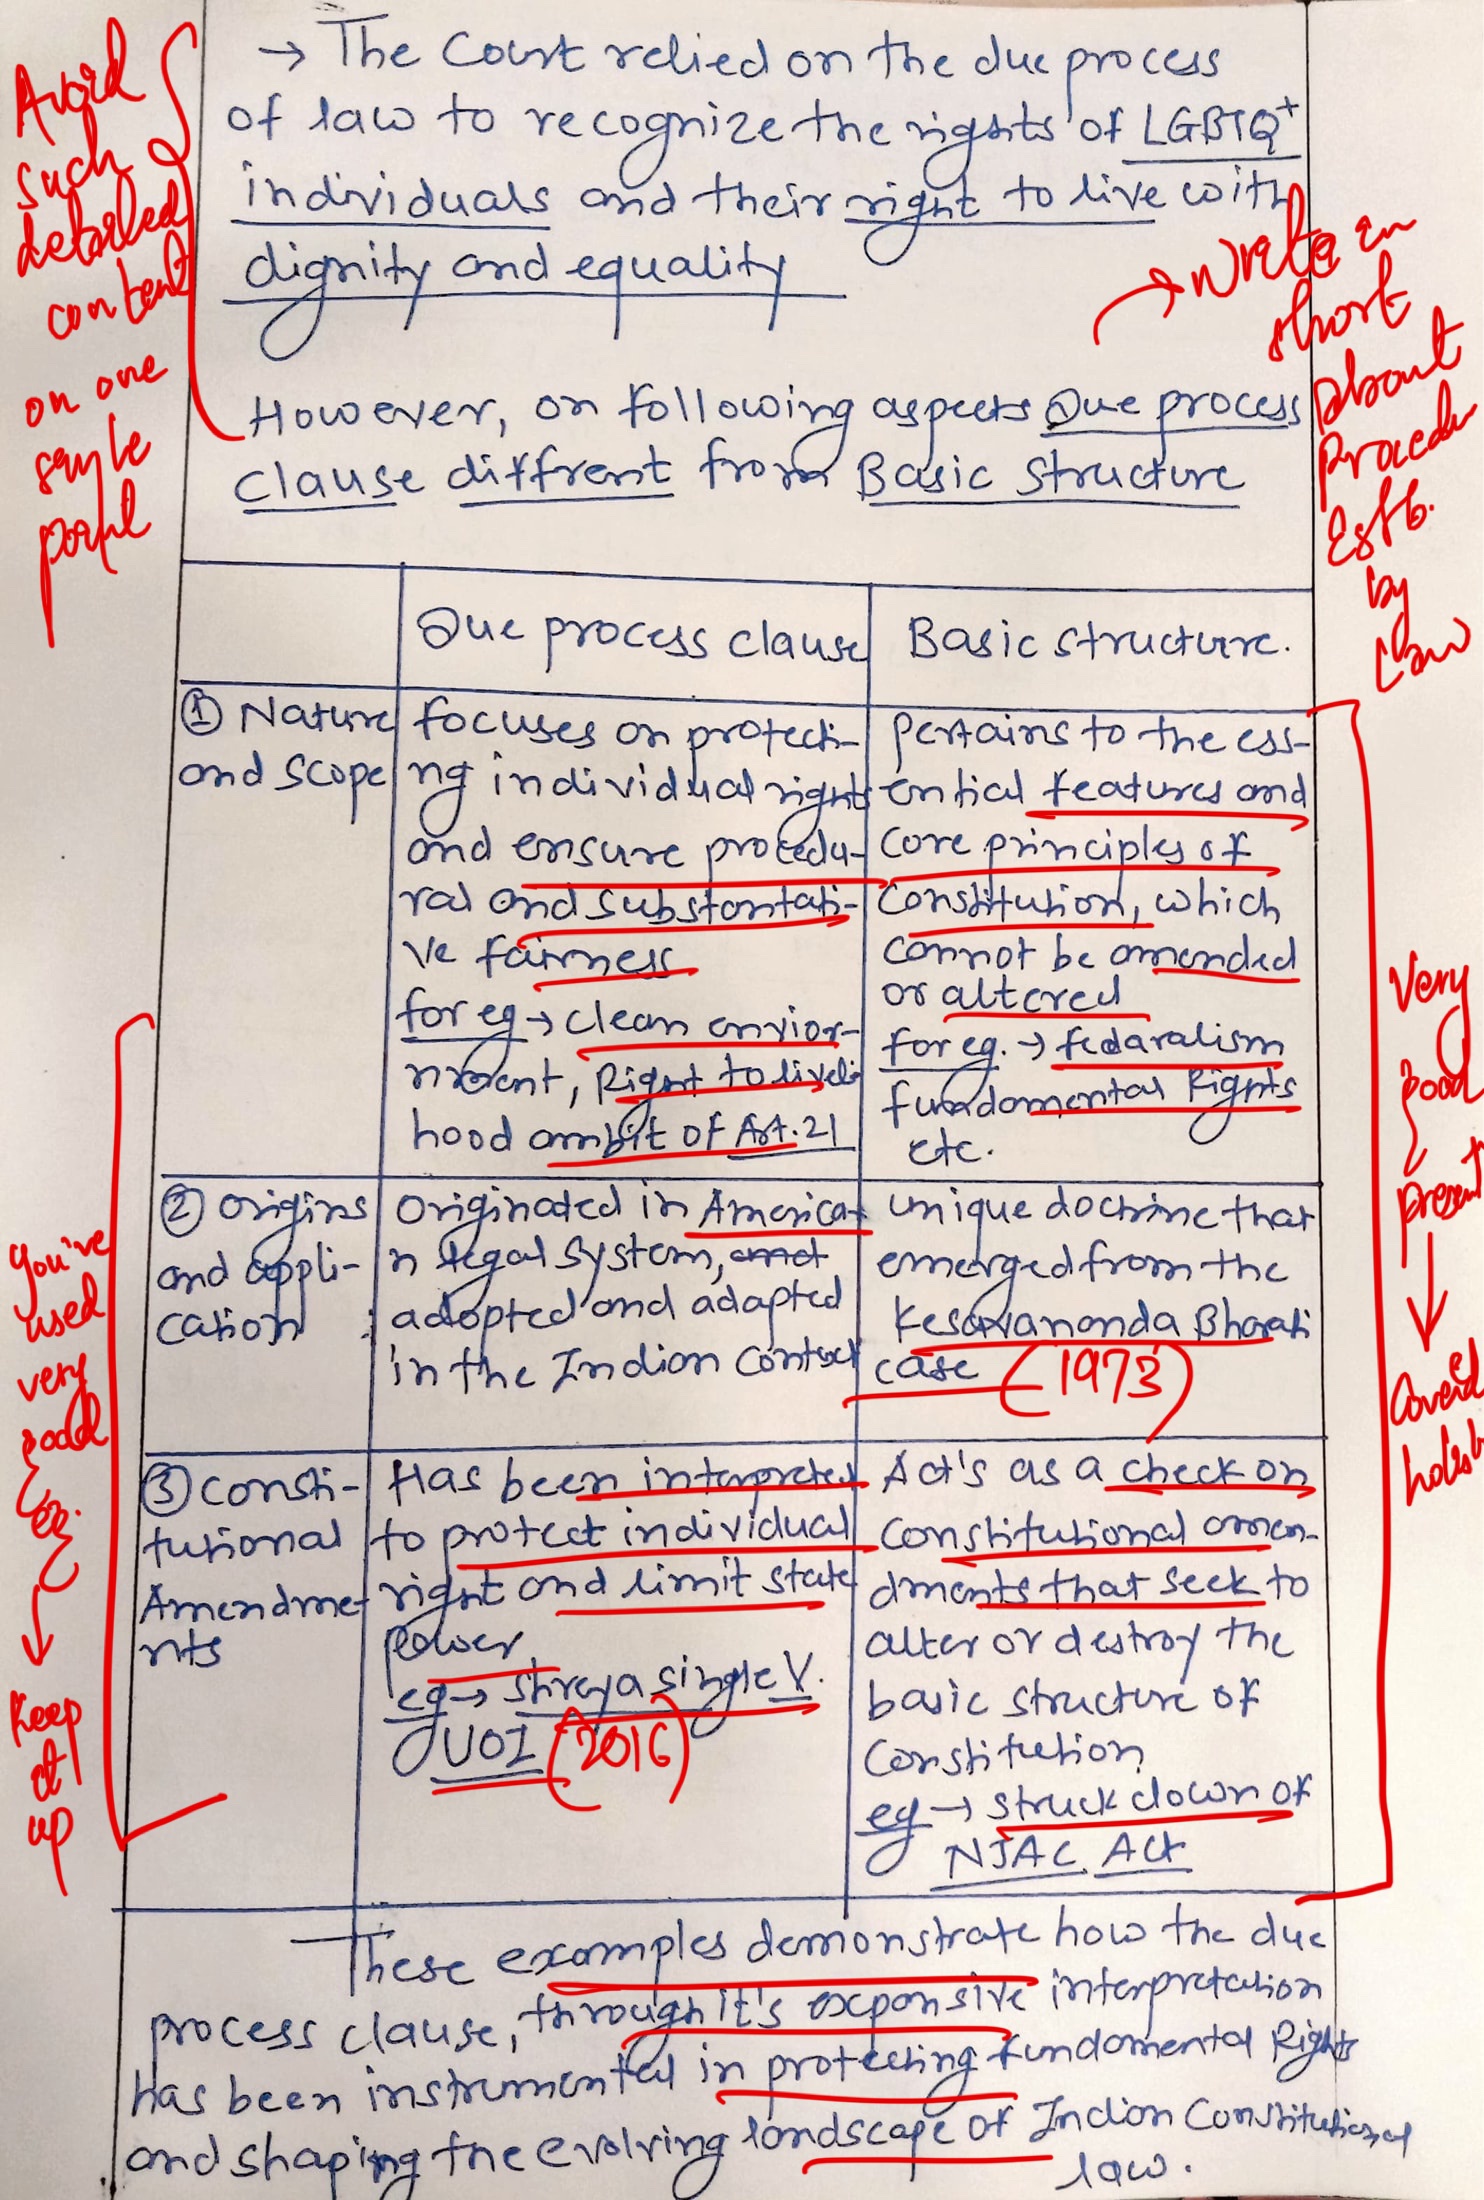 → The Court relied on the due process
of law to recognize the rights of LGBTQ+
individuals and their right to live with
dignity and equality
However, on following aspects Due process
clause diffrent from Basic Structure
Avoid
such
detailed
content
on one
single
point
→ write in
short
about
Procedu
Estb.
by
Law
Due process clause
Basic structure.
① Nature
and scope
focuses on protecti-
ng individual right
and ensure procedu-
ral and substantati-
ve fairness
for eg → clean envior-
nment, Right to liveli
hood ambit of Art. 21
Pertains to the ess-
ential features and
core principles of
constitution, which
cannot be amended
or altered
for eg. → fedaralism
fundamental Rights
etc.
② origins
and appli-
cation
originated in America-
n legal system, and
adopted and adapted
in the Indian context
unique doctrine that
emerged from the
Kesavananda Bharati
case (1973)
③ consti-
tutional
Amendme-
nts
Has been interpreted
to protect individual
right and limit state
power
eg → shreya single V.
UOI (2016)
Act's as a check on
constitutional amen-
dments that seek to
alter or destroy the
basic structure of
Constitution
eg → struck down of
NJAC Act
you've
used
very
good
eg.
↓
Keep
it
up
Very
good
present
↓
Covered
holist
These examples demonstrate how the due
process clause, through it's expansive interpretation
has been instrumental in protecting fundamental Rights
and shaping the evolving landscape of Indian Constitutional
law.